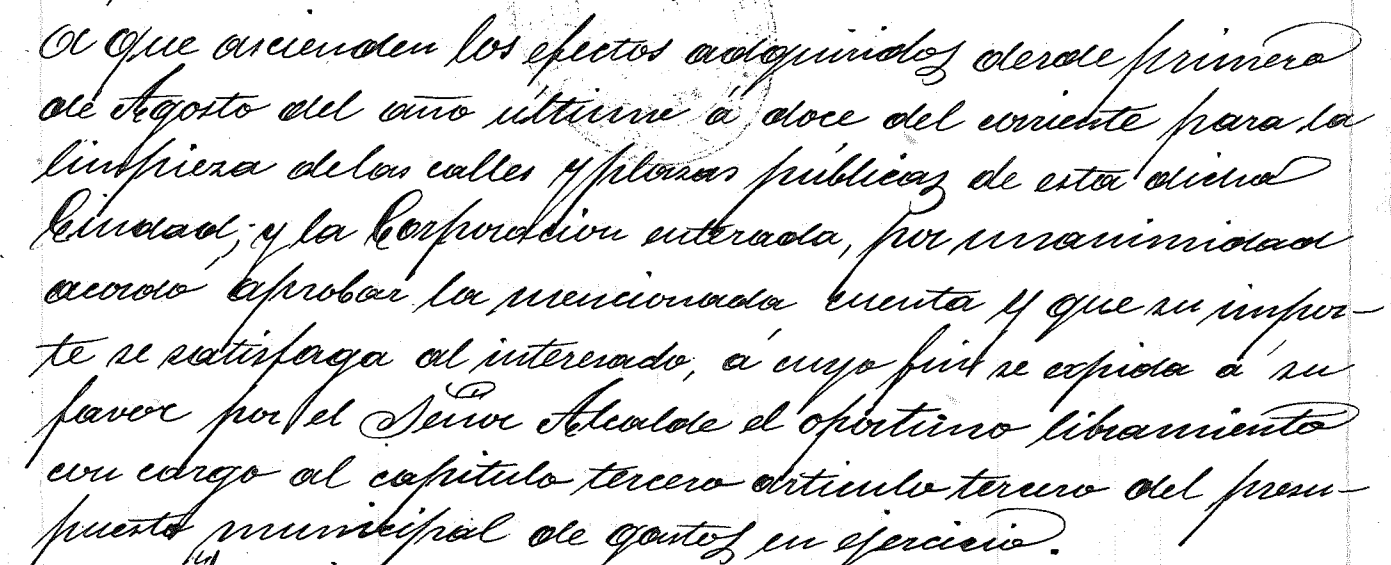 á que ascienden los efectos adquiridos desde primero
de Agosto del año último á doce del corriente para la
limpieza de las calles y plazas públicas de esta dicha
Ciudad; y la Corporacion enterada, por unanimidad
acordó aprobar la mencionada cuenta y que su impor-
te se satisfaga al interesado, á cuyo fin se expida á su
favor por el Señor Alcalde el oportuno libramiento
con cargo al capitulo tercero articulo tercero del presu-
puesto municipal de gastos en ejercicio.